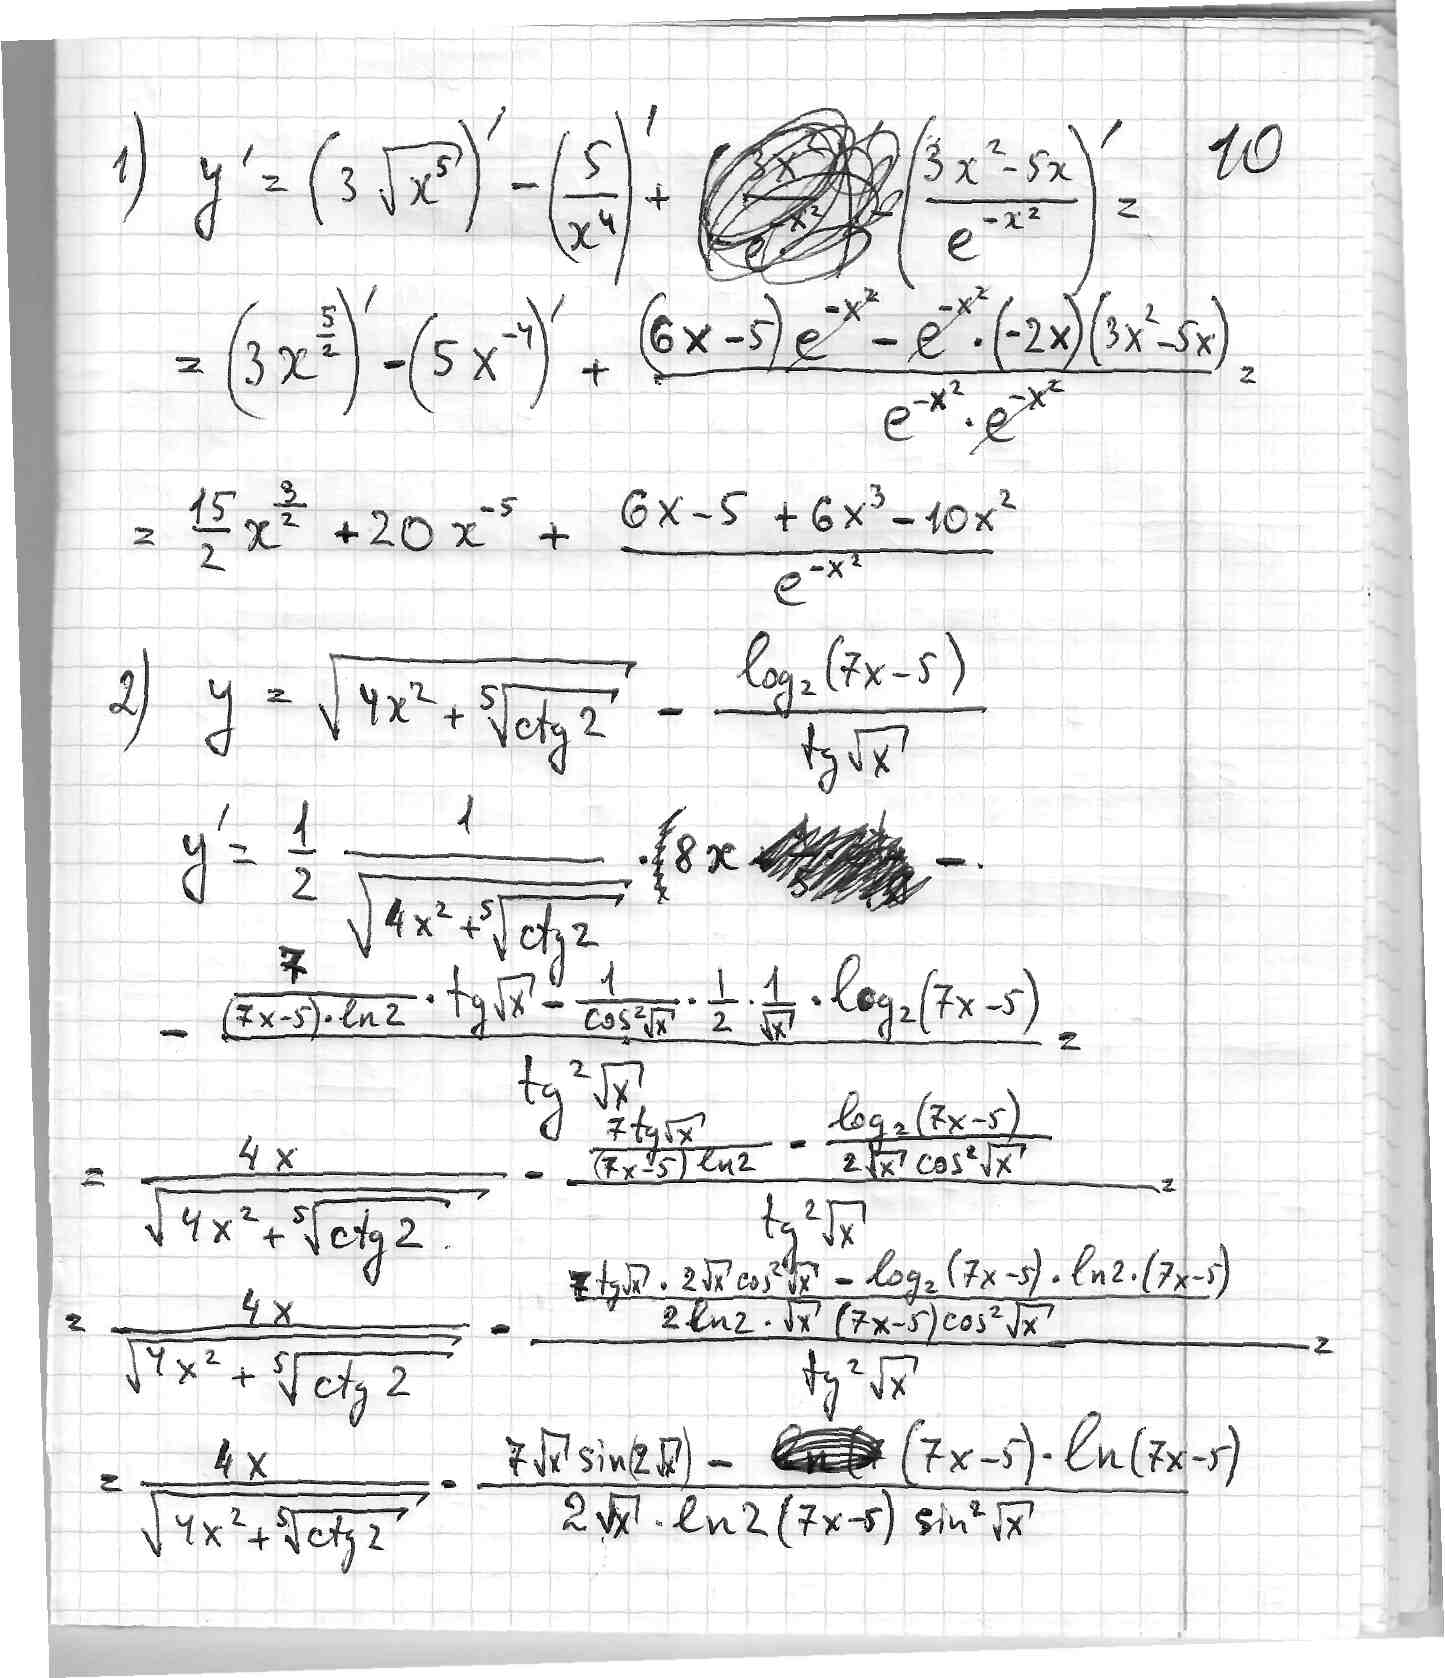 10
1) y' = (3√(x⁵))' - (5/x⁴)' + ((3x²-5x)/e^(-x²))' =
= (3x^(5/2))' - (5x⁻⁴)' + ((6x-5)e^(-x²) - e^(-x²)·(-2x)(3x²-5x))/(e^(-x²)·e^(-x²)) =
= 15/2 x^(3/2) + 20x⁻⁵ + (6x-5+6x³-10x²)/e^(-x²)
2) y = √(4x² + ⁵√(ctg2)) - log₂(7x-5)/tg√x
y' = 1/2 · 1/√(4x² + ⁵√(ctg2)) · 8x -
- (7/((7x-5)·ln2) · tg√x - 1/cos²√x · 1/2 · 1/√x · log₂(7x-5))/tg²√x =
= 4x/√(4x² + ⁵√(ctg2)) - (7tg√x/((7x-5)ln2) - log₂(7x-5)/(2√x cos²√x))/tg²√x =
= 4x/√(4x² + ⁵√(ctg2)) - ((7tg√x · 2√x cos²√x - log₂(7x-5)·ln2·(7x-5))/(2ln2·√x(7x-5)cos²√x))/tg²√x =
= 4x/√(4x² + ⁵√(ctg2)) - (7√x sin(2√x) - (7x-5)·ln(7x-5))/(2√x·ln2(7x-5)sin²√x)